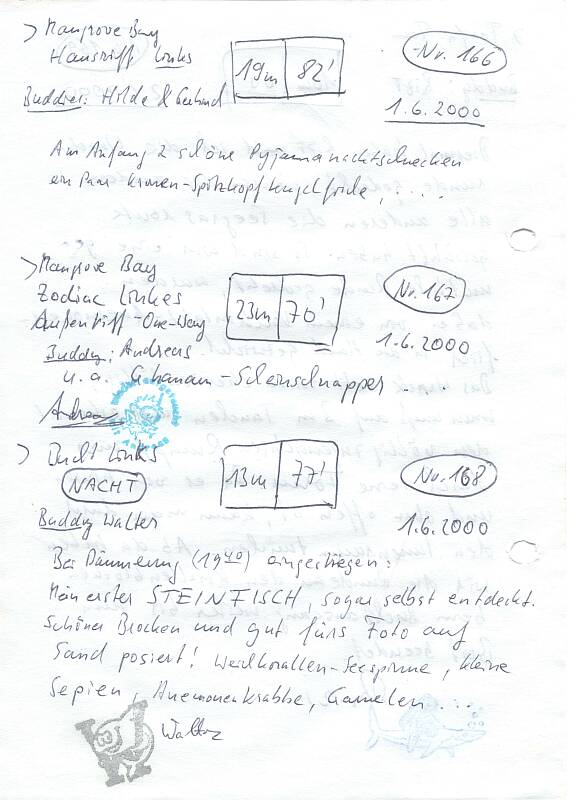 > Mangrove Bay
Hausriff links
19m 82'
Nr. 166
Buddies: Hilde & Gerhard
1.6.2000
Am Anfang 2 schöne Pyjamanachtschnecken
ein Paar Kronen-Spitzkopfkugelfische, ....
> Mangrove Bay
Zodiac Linkes
Außenriff-One-Way
23m 70'
Nr. 167
1.6.2000
Buddy: Andreas
u.a. Ghanam-Scheinschnapper ....
Andreas
> Bucht Links
NACHT
13m 77'
Nr. 168
Buddy Walter
1.6.2000
Bei Dämmerung (19⁴⁰) eingestiegen:
Mein erster STEINFISCH, sogar selbst entdeckt.
Schöner Brocken und gut fürs Foto auf
Sand posiert! Weichkorallen-Seespinne, kleine
Sepien, Anemonenkrabbe, Garnelen ...
Walter